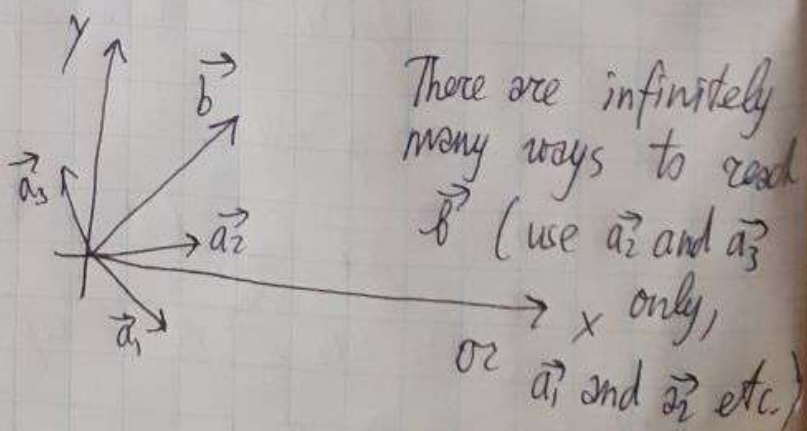 y
b⃗
a⃗3
a⃗2
a⃗1
x
There are infinitely
many ways to reach
b⃗ (use a⃗2 and a⃗3
only,
or a⃗1 and a⃗2 etc.)